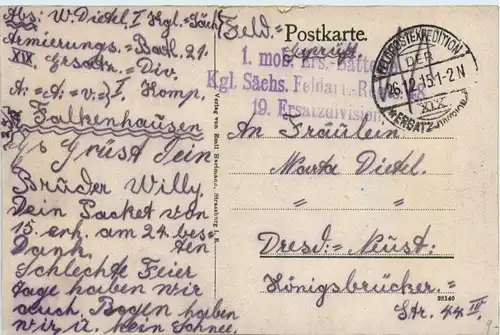 Abs: W. Dietel, I Kgl. Säch
Armierungs.= Batl. 21.
XIX. Ersatz.= Div.
A.= A.= v.= I. Komp.
Falkenhausen
Es Grüst Dein
Brüder Willy.
Dein Packet von
15. erh. am 24. bes=
ten
Dank.
Schlechte Feier
tage haben wir
auch. Regen haben
wir u. kein Schnee.
Verlag von Emil Hartmann, Strassburg i. E.
Feld.=
Postkarte.
Geprüft
1. mob. Ers.-Batte
Kgl. Sächs. Feldart.-R
19. Ersatzdivision
FELDPOSTEXPEDITION
DER
26.12.15.1-2N
XIX
ERSATZ-DIVISION
An Fräulein
Marta Dietel.
Dresd.= Neust:
Königsbrücker.=
Str. 44 IV.
25140